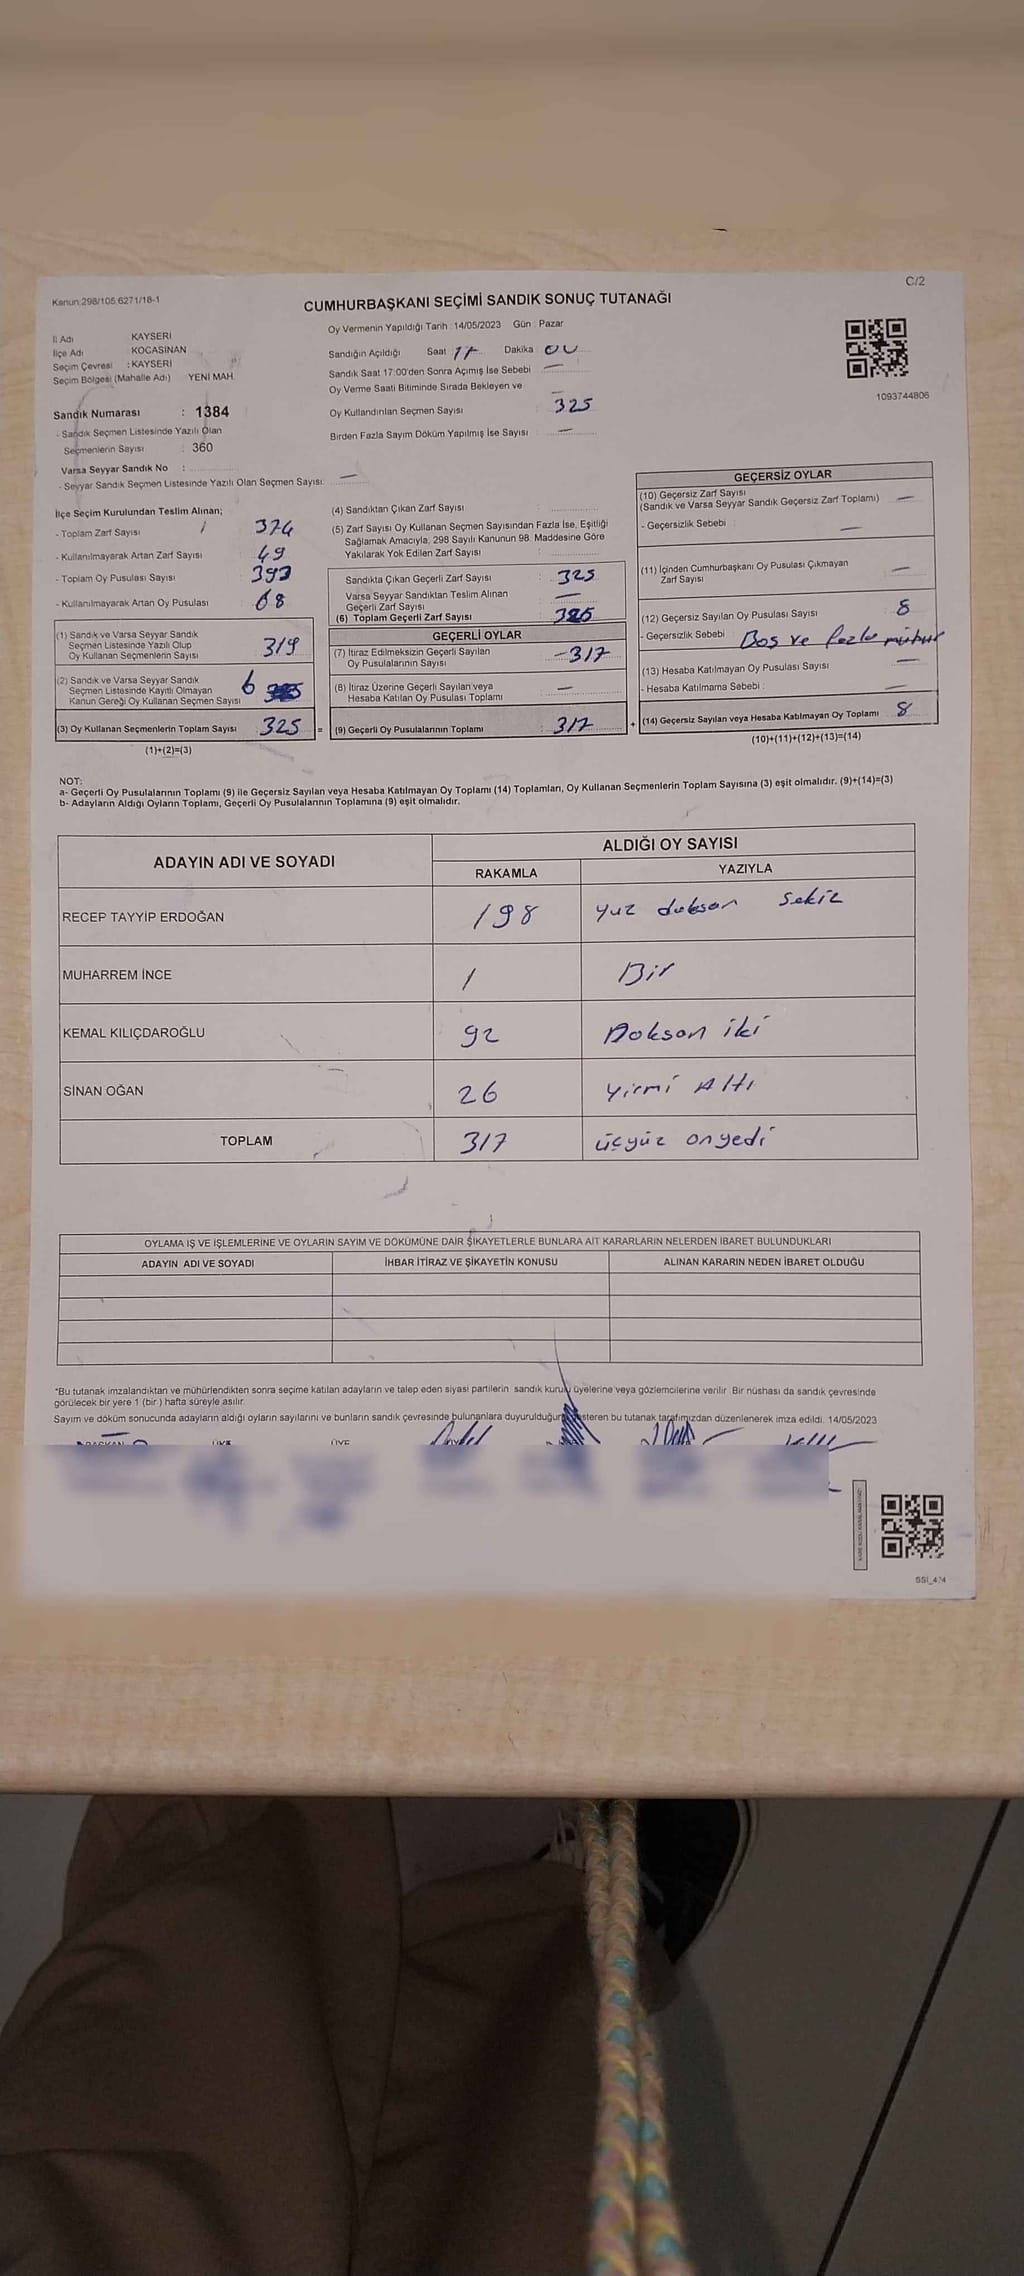 C/2
Kanun:298/105;6271/18-1
CUMHURBAŞKANI SEÇİMİ SANDIK SONUÇ TUTANAĞI
İl Adı KAYSERİ
İlçe Adı KOCASİNAN
Seçim Çevresi : KAYSERİ
Seçim Bölgesi (Mahalle Adı) YENİ MAH.
Sandık Numarası : 1384
- Sandık Seçmen Listesinde Yazılı Olan
Seçmenlerin Sayısı : 360
Varsa Seyyar Sandık No :
- Seyyar Sandık Seçmen Listesinde Yazılı Olan Seçmen Sayısı: —
Oy Vermenin Yapıldığı Tarih : 14/05/2023 Gün : Pazar
Sandığın Açıldığı Saat 17 Dakika 00
Sandık Saat 17:00'den Sonra Açımış İse Sebebi —
Oy Verme Saati Bitiminde Sırada Bekleyen ve —
Oy Kullandırılan Seçmen Sayısı : 325
Birden Fazla Sayım Döküm Yapılmış İse Sayısı : —
1093744806
İlçe Seçim Kurulundan Teslim Alınan;
- Toplam Zarf Sayısı 374
- Kullanılmayarak Artan Zarf Sayısı 49
- Toplam Oy Pusulası Sayısı 393
- Kullanılmayarak Artan Oy Pusulası 68
(1) Sandık ve Varsa Seyyar Sandık
Seçmen Listesinde Yazılı Olup
Oy Kullanan Seçmenlerin Sayısı 319
(2) Sandık ve Varsa Seyyar Sandık
Seçmen Listesinde Kayıtlı Olmayan
Kanun Gereği Oy Kullanan Seçmen Sayısı 6
(3) Oy Kullanan Seçmenlerin Toplam Sayısı 325 =
(1)+(2)=(3)
(4) Sandıktan Çıkan Zarf Sayısı :
(5) Zarf Sayısı Oy Kullanan Seçmen Sayısından Fazla İse, Eşitliği
Sağlamak Amacıyla, 298 Sayılı Kanunun 98. Maddesine Göre
Yakılarak Yok Edilen Zarf Sayısı :
Sandıkta Çıkan Geçerli Zarf Sayısı : 325
Varsa Seyyar Sandıktan Teslim Alınan
Geçerli Zarf Sayısı : —
(6) Toplam Geçerli Zarf Sayısı : 325
GEÇERLİ OYLAR
(7) İtiraz Edilmeksizin Geçerli Sayılan
Oy Pusulalarının Sayısı : -317
(8) İtiraz Üzerine Geçerli Sayılan veya
Hesaba Katılan Oy Pusulası Toplamı : —
(9) Geçerli Oy Pusulalarının Toplamı : 317 +
GEÇERSİZ OYLAR
(10) Geçersiz Zarf Sayısı
(Sandık ve Varsa Seyyar Sandık Geçersiz Zarf Toplamı) —
- Geçersizlik Sebebi : —
(11) İçinden Cumhurbaşkanı Oy Pusulası Çıkmayan
Zarf Sayısı —
(12) Geçersiz Sayılan Oy Pusulası Sayısı 8
- Geçersizlik Sebebi : Boş ve fazla mühür
(13) Hesaba Katılmayan Oy Pusulası Sayısı —
- Hesaba Katılmama Sebebi : —
(14) Geçersiz Sayılan veya Hesaba Katılmayan Oy Toplamı 8
(10)+(11)+(12)+(13)=(14)
NOT:
a- Geçerli Oy Pusulalarının Toplamı (9) ile Geçersiz Sayılan veya Hesaba Katılmayan Oy Toplamı (14) Toplamları, Oy Kullanan Seçmenlerin Toplam Sayısına (3) eşit olmalıdır. (9)+(14)=(3)
b- Adayların Aldığı Oyların Toplamı, Geçerli Oy Pusulalarının Toplamına (9) eşit olmalıdır.
ADAYIN ADI VE SOYADI
ALDIĞI OY SAYISI
RAKAMLA YAZIYLA
RECEP TAYYİP ERDOĞAN 198 Yuz doksan sekiz
MUHARREM İNCE 1 Bir
KEMAL KILIÇDAROĞLU 92 Doksan iki
SİNAN OĞAN 26 Yirmi Altı
TOPLAM 317 üçyüz onyedi
OYLAMA İŞ VE İŞLEMLERİNE VE OYLARIN SAYIM VE DÖKÜMÜNE DAİR ŞİKAYETLERLE BUNLARA AİT KARARLARIN NELERDEN İBARET BULUNDUKLARI
ADAYIN ADI VE SOYADI İHBAR İTİRAZ VE ŞİKAYETİN KONUSU ALINAN KARARIN NEDEN İBARET OLDUĞU
*Bu tutanak imzalandıktan ve mühürlendikten sonra seçime katılan adayların ve talep eden siyasi partilerin sandık kurulu üyelerine veya gözlemcilerine verilir. Bir nüshası da sandık çevresinde
görülecek bir yere 1 (bir ) hafta süreyle asılır.
Sayım ve döküm sonucunda adayların aldığı oyların sayılarını ve bunların sandık çevresinde bulunanlara duyurulduğunu gösteren bu tutanak tarafımızdan düzenlenerek imza edildi. 14/05/2023
BAŞKAN ÜYE ÜYE